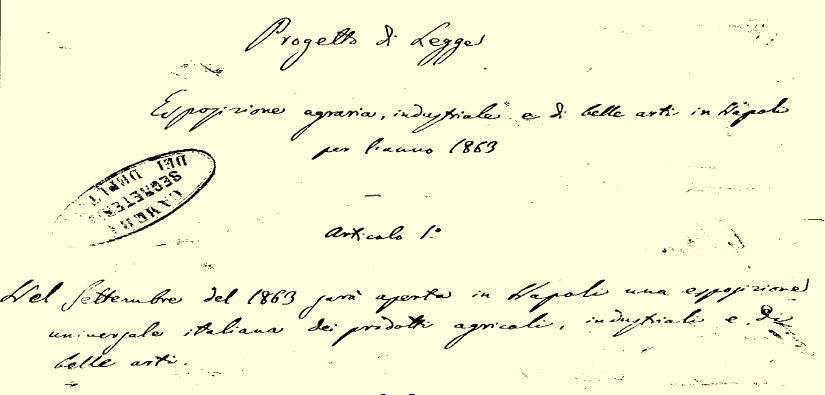 Progetto di Legge
Esposizione agraria, industriale e di belle arti in Napoli
per l'anno 1863
CAMERA
DEI
SEGRETERIA
Articolo 1.º
Nel Settembre del 1863 sarà aperta in Napoli una esposizione
universale italiana dei prodotti agricoli, industriali e di
belle arti.